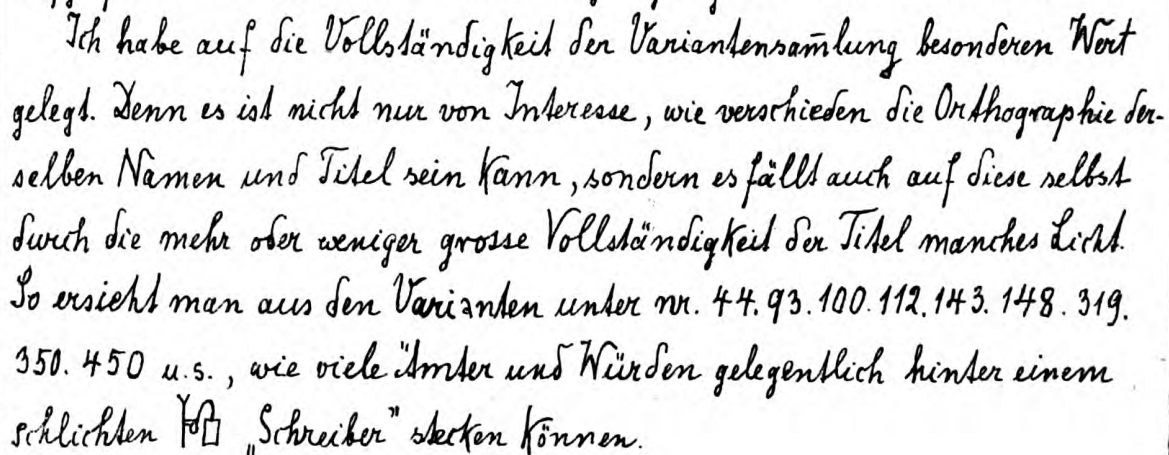 Ich habe auf die Vollständigkeit der Variantensam̄lung besonderen Wert
gelegt. Denn es ist nicht nur von Interesse, wie verschieden die Orthographie der-
selben Namen und Titel sein kann, sondern es fällt auch auf diese selbst
durch die mehr oder weniger grosse Vollständigkeit der Titel manches Licht.
So ersieht man aus den Varianten unter nr. 44. 93. 100. 112. 143. 148. 319.
350. 450 u.s., wie viele Ämter und Würden gelegentlich hinter einem
schlichten 𓏟 „Schreiber" stecken können.